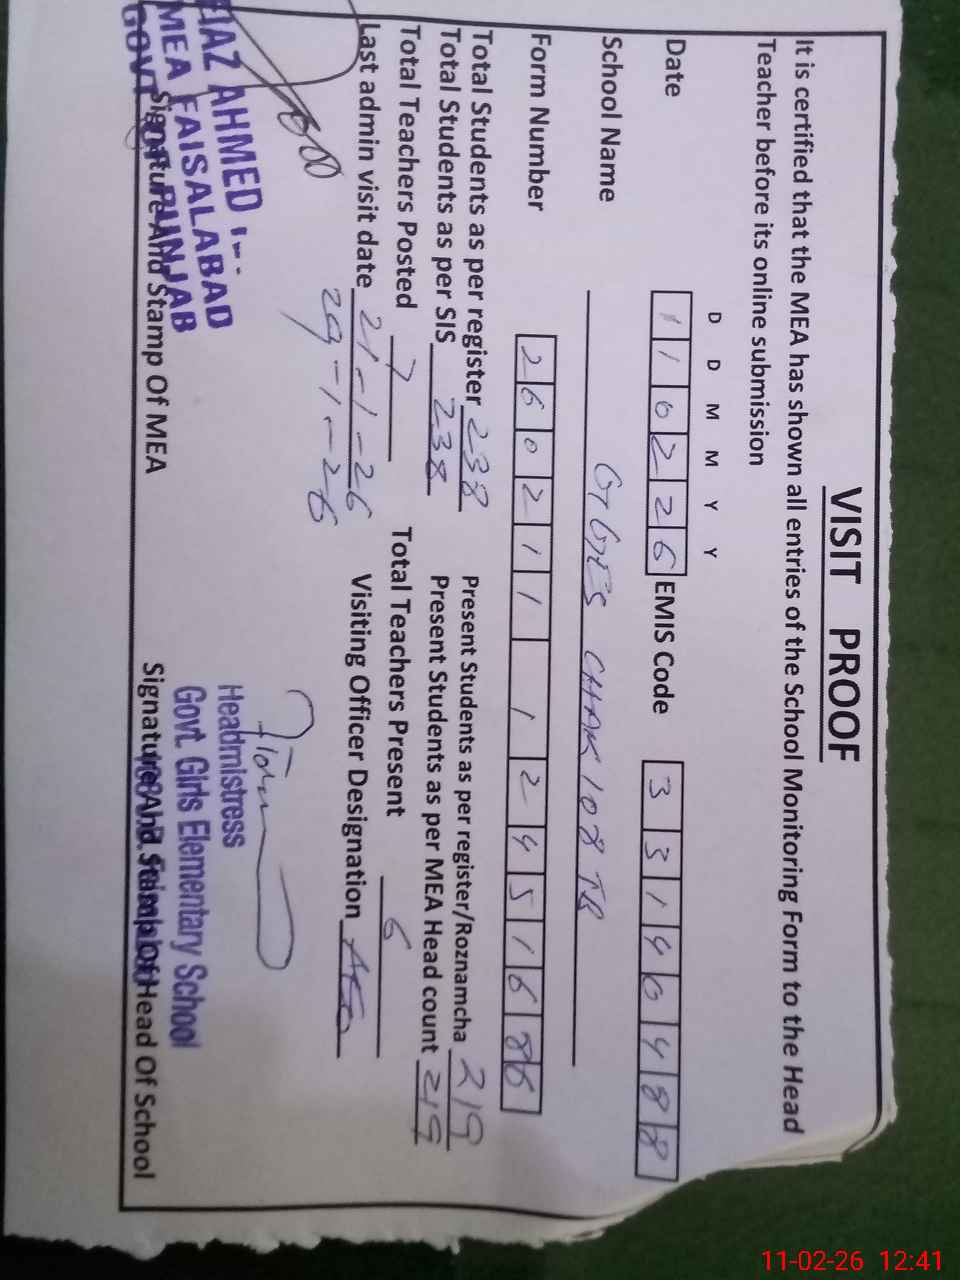 VISIT PROOF
It is certified that the MEA has shown all entries of the School Monitoring Form to the Head
Teacher before its online submission
D D M M Y Y
Date 1 1 0 2 2 6 EMIS Code 3 3 1 4 0 4 8 8
School Name GGES CHAK 108 JB
Form Number 2 6 0 2 1 1 1 2 4 5 1 6 8 6
Total Students as per register 238 Present Students as per register/Roznamcha 219
Total Students as per SIS 238 Present Students as per MEA Head count 219
Total Teachers Posted 7 Total Teachers Present 6
Last admin visit date 21-1-26 Visiting Officer Designation AEO
29-1-26
AHMED
MEA FAISALABAD
GOVT OF PUNJAB
Headmistress
Govt. Girls Elementary School
Signature And Stamp Of MEA Signature And Stamp Of Head Of School
11-02-26 12:41